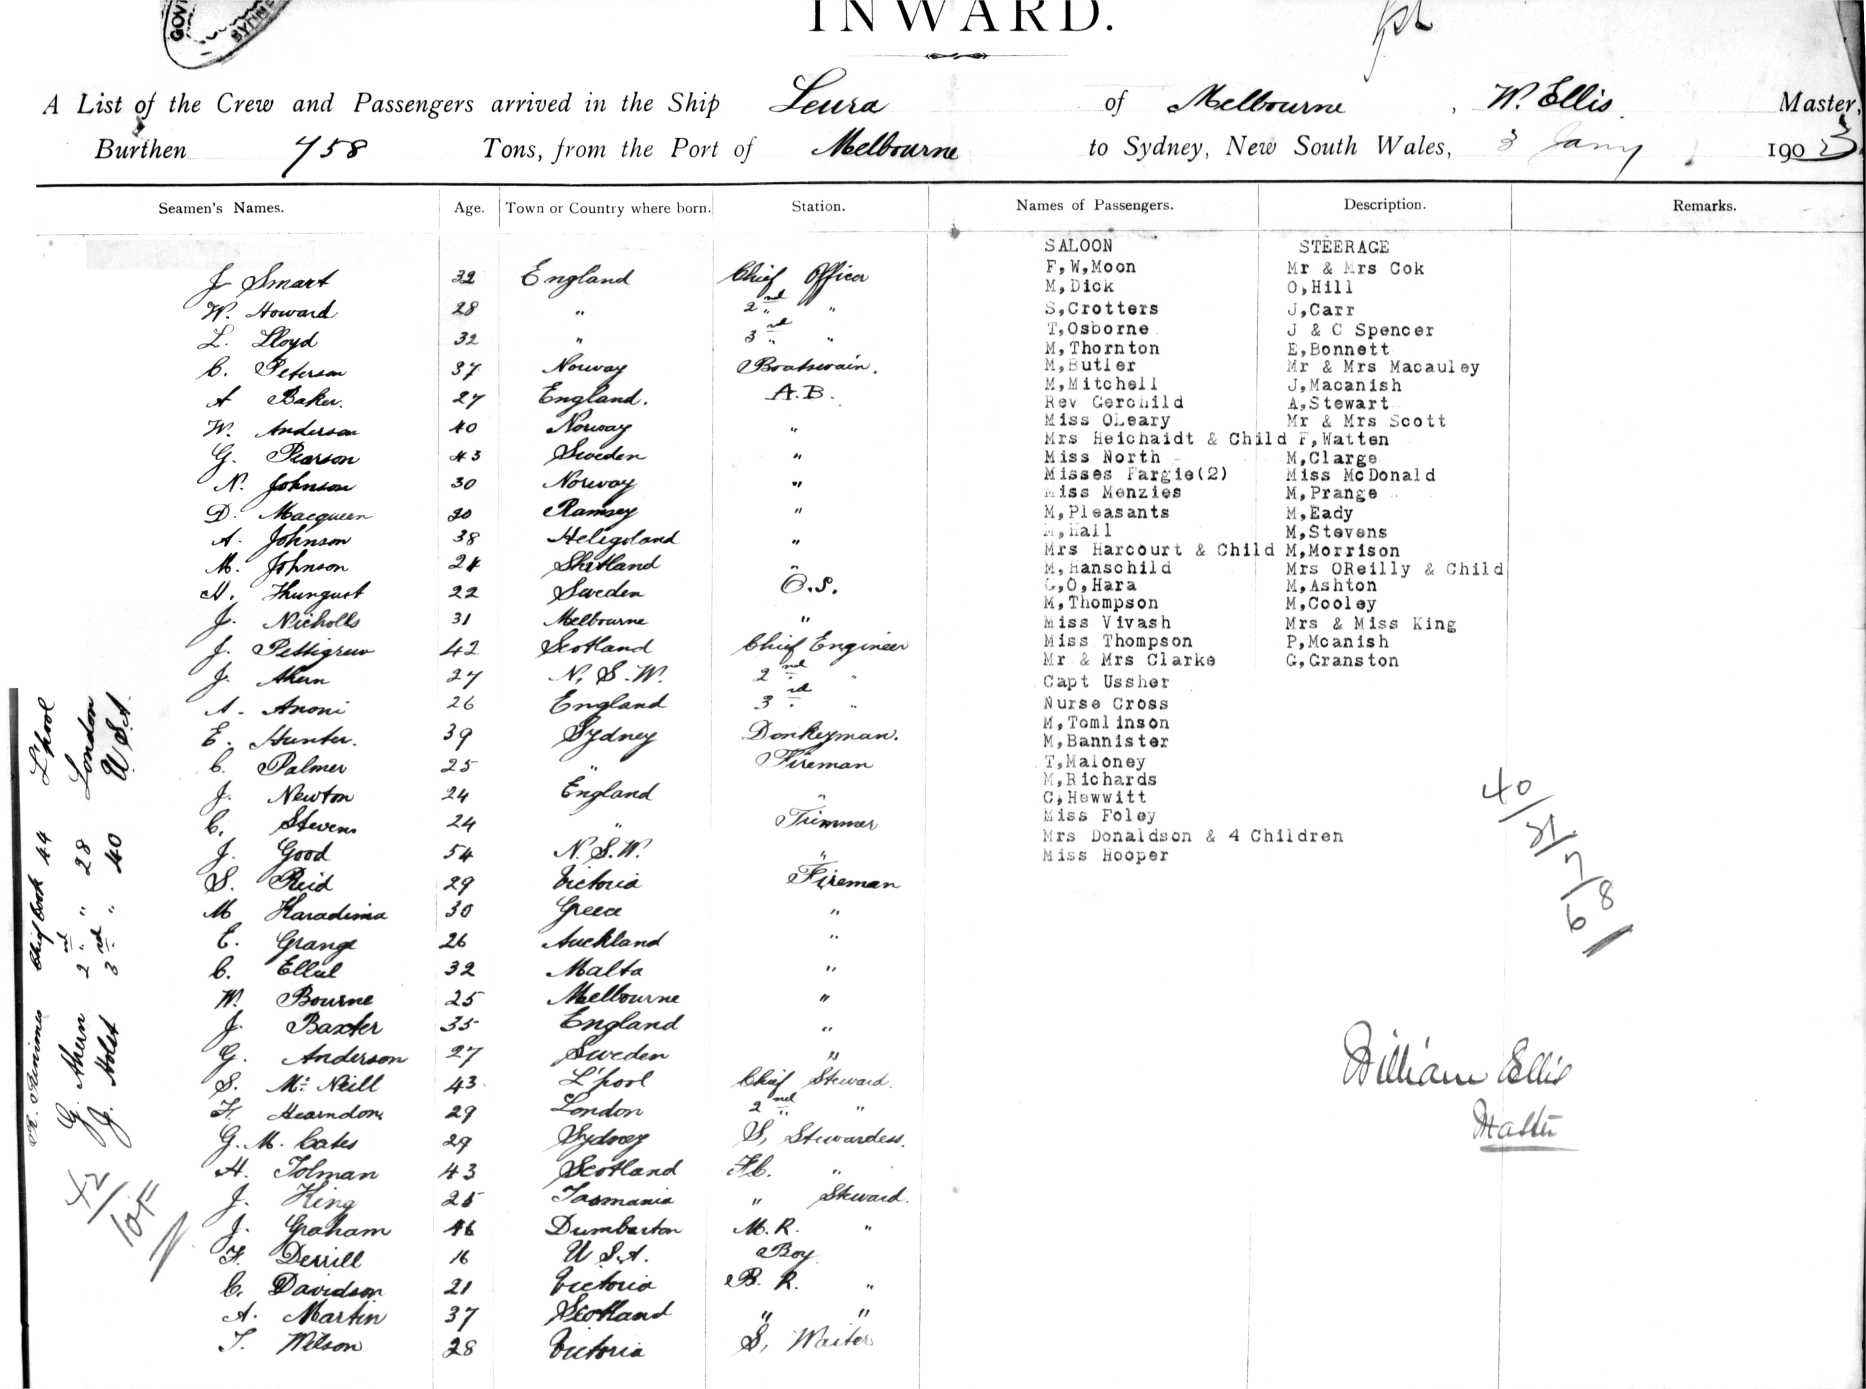 INWARD.
A List of the Crew and Passengers arrived in the Ship Leura of Melbourne, W. Ellis. Master,
Burthen 758 Tons, from the Port of Melbourne to Sydney, New South Wales, 3 Jany 1903
Seamen's Names. Age. Town or Country where born. Station. Names of Passengers. Description. Remarks.
J Smart 32 England Chief Officer
W. Howard 28 " 2nd "
L. Lloyd 32 " 3rd "
C. Peterson 37 Norway Boatswain.
A Baker. 27 England. A.B.
W. Anderson 40 Norway "
G. Pearson 43 Sweden "
N. Johnson 30 Norway "
D. Macqueen 30 Ramsey "
A. Johnson 38 Heligoland "
M. Johnson 24 Shetland "
H. 22 Sweden O.S.
J. Nicholls 31 Melbourne "
J. Pettigrew 42 Scotland Chief Engineer
J. Ahern 27 N.S.W. 2nd "
A. Anoni 26 England 3rd "
E. Hunter. 39 Sydney Donkeyman.
C. Palmer 25 " Fireman
J. Newton 24 England "
C. Stevens 24 " Trimmer
J. Good 54 N.S.W. "
S. Reid 29 Victoria Fireman
M Karadima 30 Greece "
E. Grange 26 Auckland "
C. Ellul 32 Malta "
W. Bourne 25 Melbourne "
J. Baxter 35 England "
G. Anderson 27 Sweden "
S. Mc Neill 43 L'pool Chief Steward.
F. Hearndon 29 London 2nd "
G. M. Cates 29 Sydney S, Stewardess.
H. Tolman 43 Scotland F.C. "
J. King 25 Tasmania " Steward.
J. Graham 46 Dumbarton M.R. "
F. Derrill 16 U.S.A. Boy
C. Davidson 21 Victoria B.R. "
A. Martin 37 Scotland " "
T. Wilson 28 Victoria S, Waiter
SALOON
F,W,Moon
M,Dick
S,Crotters
T,Osborne
M,Thornton
M,Butler
M,Mitchell
Rev Gerchild
Miss OLeary
Mrs Heichaidt & Child
Miss North
Misses Fargie(2)
Miss Menzies
M,Pleasants
M,Hall
Mrs Harcourt & Child
M,Hanschild
G,O,Hara
M,Thompson
Miss Vivash
Miss Thompson
Mr & Mrs Clarke
Capt Ussher
Nurse Cross
M,Tomlinson
M,Bannister
T,Maloney
M,Richards
C,Hewwitt
Miss Foley
Mrs Donaldson & 4 Children
Miss Hooper
STEERAGE
Mr & Mrs Cok
O,Hill
J,Carr
J & C Spencer
E,Bonnett
Mr & Mrs Macauley
J,Macanish
A,Stewart
Mr & Mrs Scott
F,Watten
M,Clarge
Miss McDonald
M,Prange
M,Eady
M,Stevens
M,Morrison
Mrs OReilly & Child
M,Ashton
M,Cooley
Mrs & Miss King
P,Mcanish
G,Granston
Chief Cook 44 L'pool
G. Ahern 2nd " 28 London
J. Holst 3rd " 40 U.S.A.
William Ellis
Master